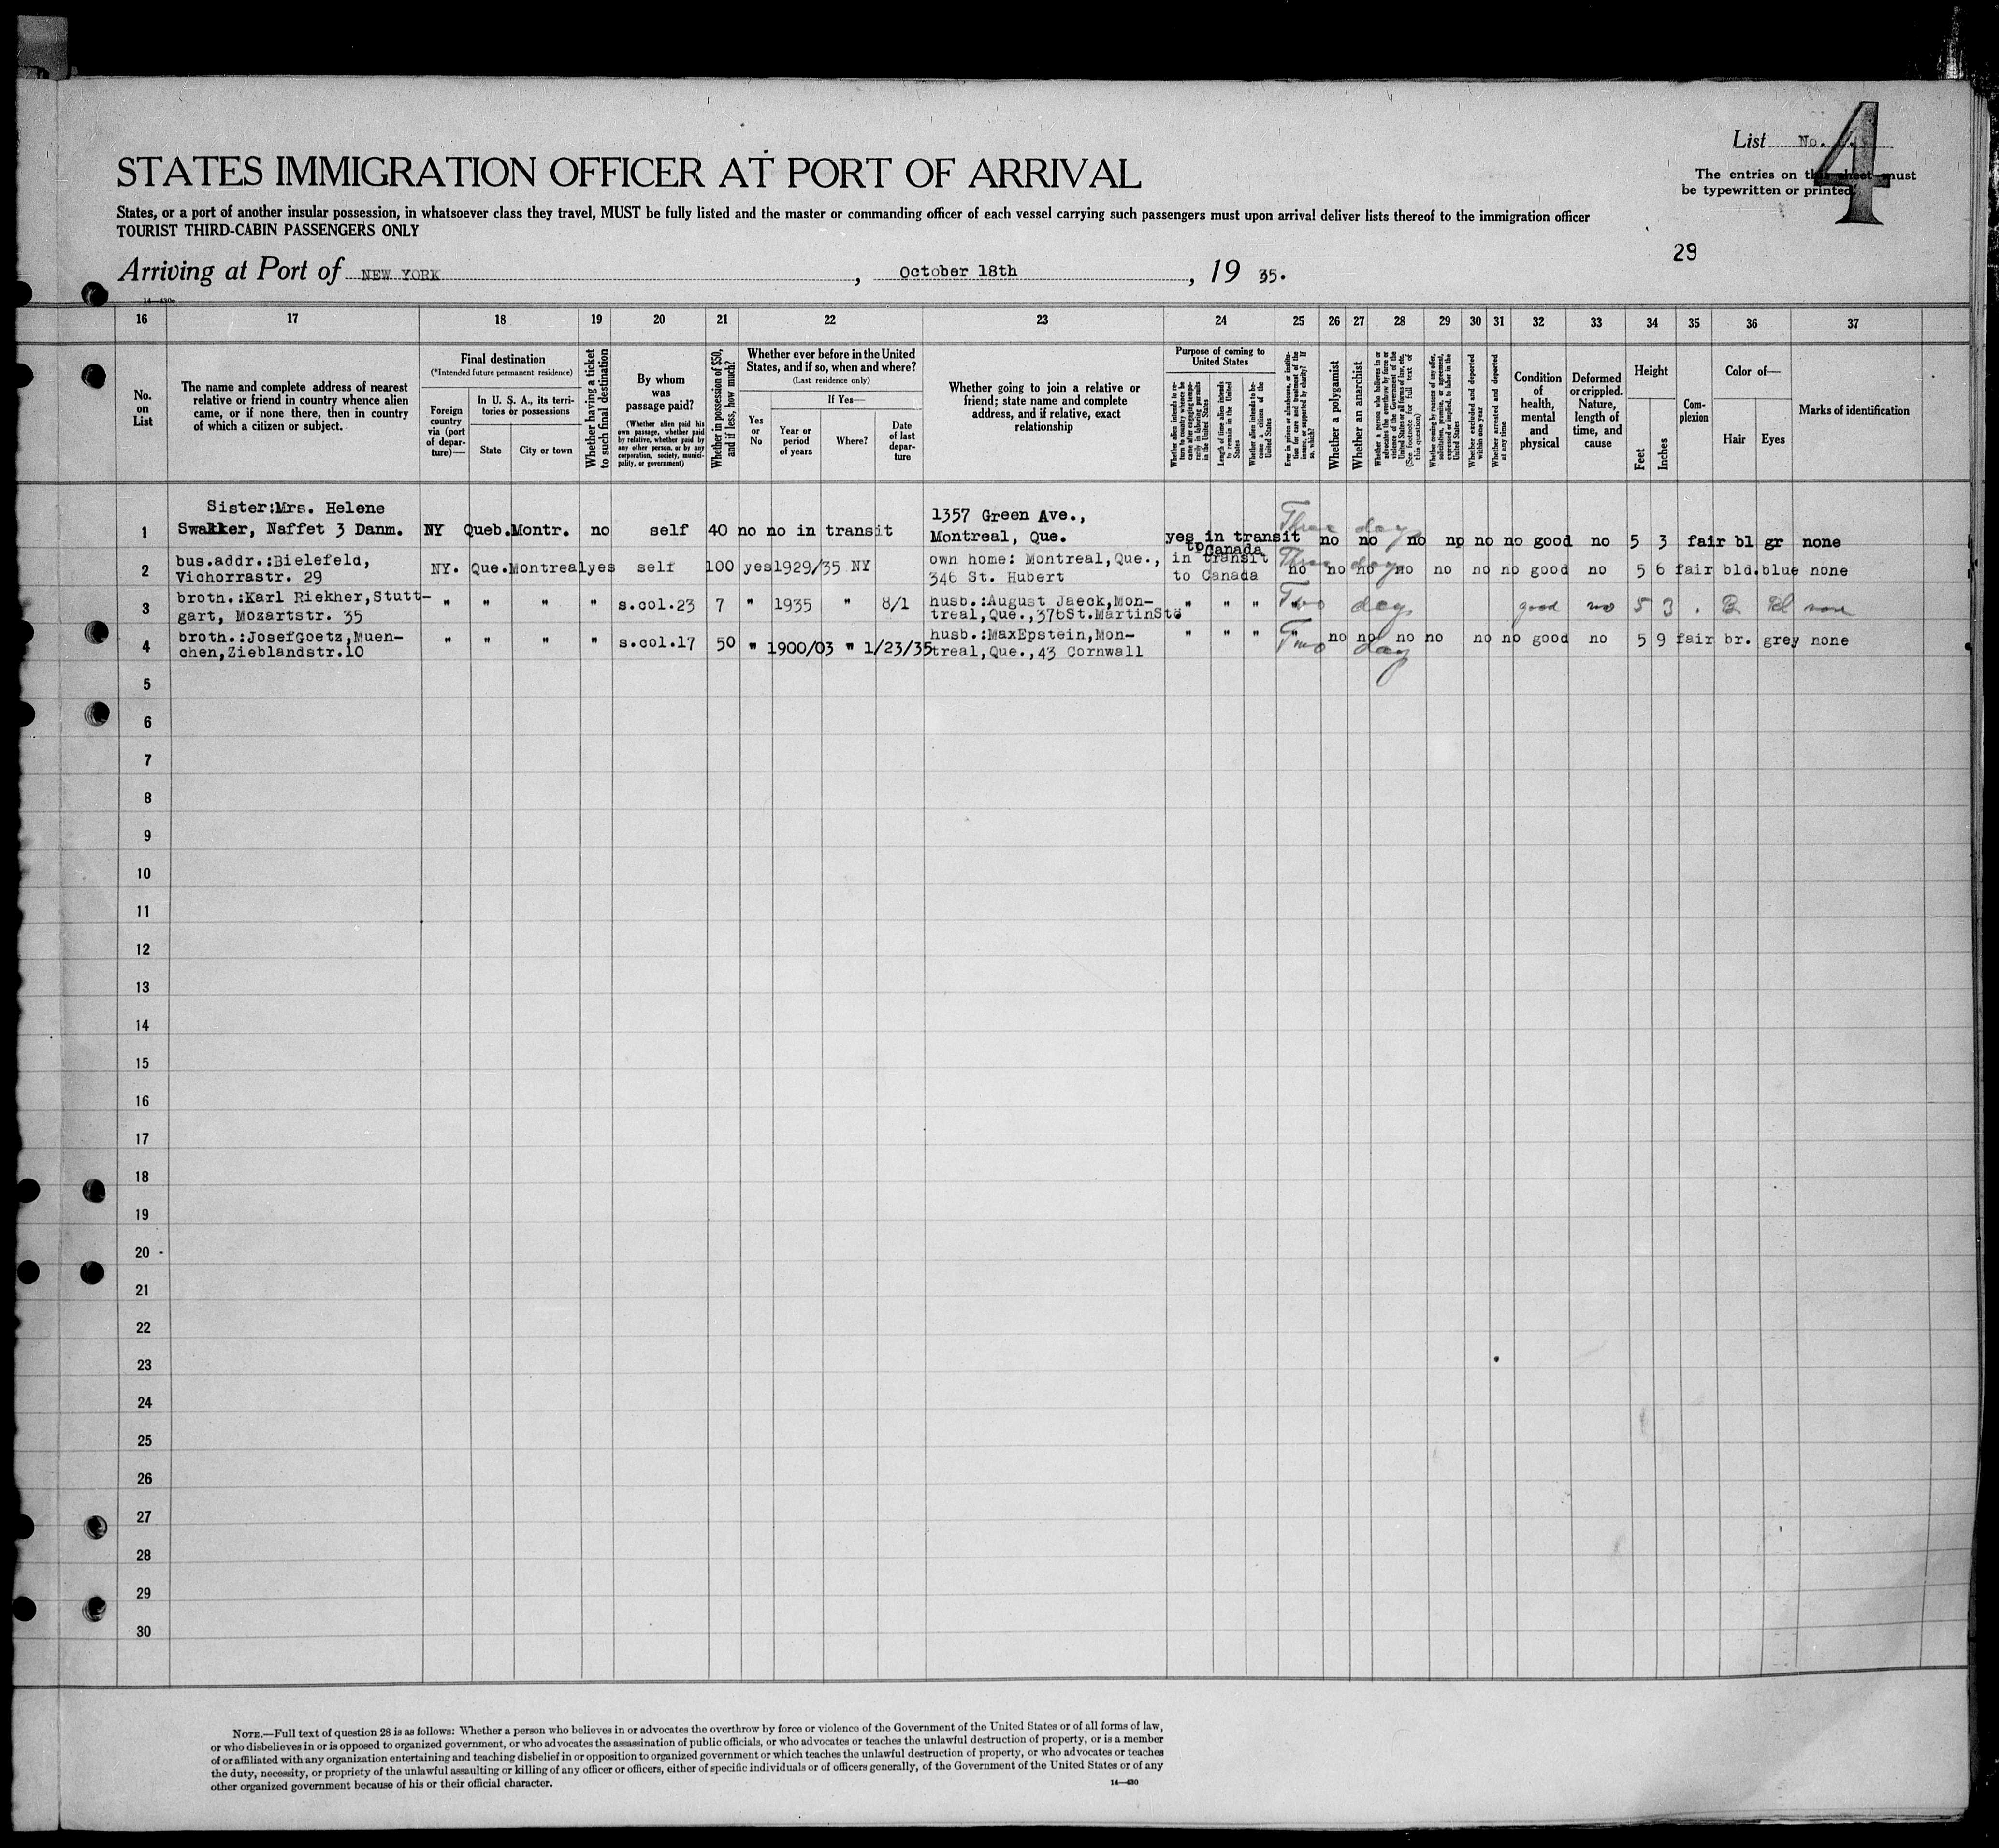 List No.
4
The entries on this sheet must
be typewritten or printed.
STATES IMMIGRATION OFFICER AT PORT OF ARRIVAL
States, or a port of another insular possession, in whatsoever class they travel, MUST be fully listed and the master or commanding officer of each vessel carrying such passengers must upon arrival deliver lists thereof to the immigration officer
TOURIST THIRD-CABIN PASSENGERS ONLY
29
Arriving at Port of NEW YORK, October 18th, 19 35.
16 17 18 19 20 21 22 23 24 25 26 27 28 29 30 31 32 33 34 35 36 37
No. on List
The name and complete address of nearest relative or friend in country whence alien came, or if none there, then in country of which a citizen or subject.
Final destination
(*Intended future permanent residence)
Foreign country via (port of departure)—
In U. S. A., its territories or possessions
State
City or town
Whether having a ticket to such final destination
By whom was passage paid?
(Whether alien paid his own passage, whether paid by relative, whether paid by any other person, or by any corporation, society, municipality, or government)
Whether in possession of $50, and if less, how much?
Whether ever before in the United States, and if so, when and where?
(Last residence only)
Yes or No
If Yes—
Year or period of years
Where?
Date of last departure
Whether going to join a relative or friend; state name and complete address, and if relative, exact relationship
Purpose of coming to United States
Whether alien intends to return to country whence he came after engaging temporarily in laboring pursuits in the United States
Length of time alien intends to remain in the United States
Whether alien intends to become a citizen of the United States
Ever in prison or almshouse, or institution for care and treatment of the insane, or supported by charity? If so, which?
Whether a polygamist
Whether an anarchist
Whether a person who believes in or advocates the overthrow by force or violence of the Government of the United States or all forms of law, etc. (See footnote for full text of this question)
Whether coming by reason of any offer, solicitation, promise, or agreement, expressed or implied, to labor in the United States
Whether excluded and deported within one year
Whether arrested and deported at any time
Condition of health, mental and physical
Deformed or crippled. Nature, length of time, and cause
Height
Feet
Inches
Complexion
Color of—
Hair
Eyes
Marks of identification
Sister:Mrs. Helene 1357 Green Ave., Three days
1 Swakker, Naffet 3 Danm. NY Queb. Montr. no self 40 no no in transit Montreal, Que. yes in transit to Canada no no no no no no good no 5 3 fair bl gr none
bus.addr.:Bielefeld, own home: Montreal,Que., in transit Three days
2 Vichorrastr. 29 NY. Que. Montreal yes self 100 yes 1929/35 NY 346 St. Hubert to Canada no no no no no no no good no 5 6 fair bld. blue none
broth.:Karl Riekher,Stutt- husb.:August Jaeck,Mon-
3 gart, Mozartstr. 35 " " " " s.col.23 7 " 1935 " 8/1 treal,Que.,376St.MartinSt " " " Two days good no 5 3 . B Bl none
broth.:JosefGoetz,Muen- husb.:MaxEpstein,Mon-
4 chen,Zieblandstr.10 " " " " s.col.17 50 " 1900/03 " 1/23/35 treal,Que.,43 Cornwall " " " " Two days no no no no no no good no 5 9 fair br. grey none
5
6
7
8
9
10
11
12
13
14
15
16
17
18
19
20
21
22
23
24
25
26
27
28
29
30
NOTE.—Full text of question 28 is as follows: Whether a person who believes in or advocates the overthrow by force or violence of the Government of the United States or of all forms of law,
or who disbelieves in or is opposed to organized government, or who advocates the assassination of public officials, or who advocates or teaches the unlawful destruction of property, or is a member
of or affiliated with any organization entertaining and teaching disbelief in or opposition to organized government or which teaches the unlawful destruction of property, or who advocates or teaches
the duty, necessity, or propriety of the unlawful assaulting or killing of any officer or officers, either of specific individuals or of officers generally, of the Government of the United States or of any
other organized government because of his or their official character.
14—430